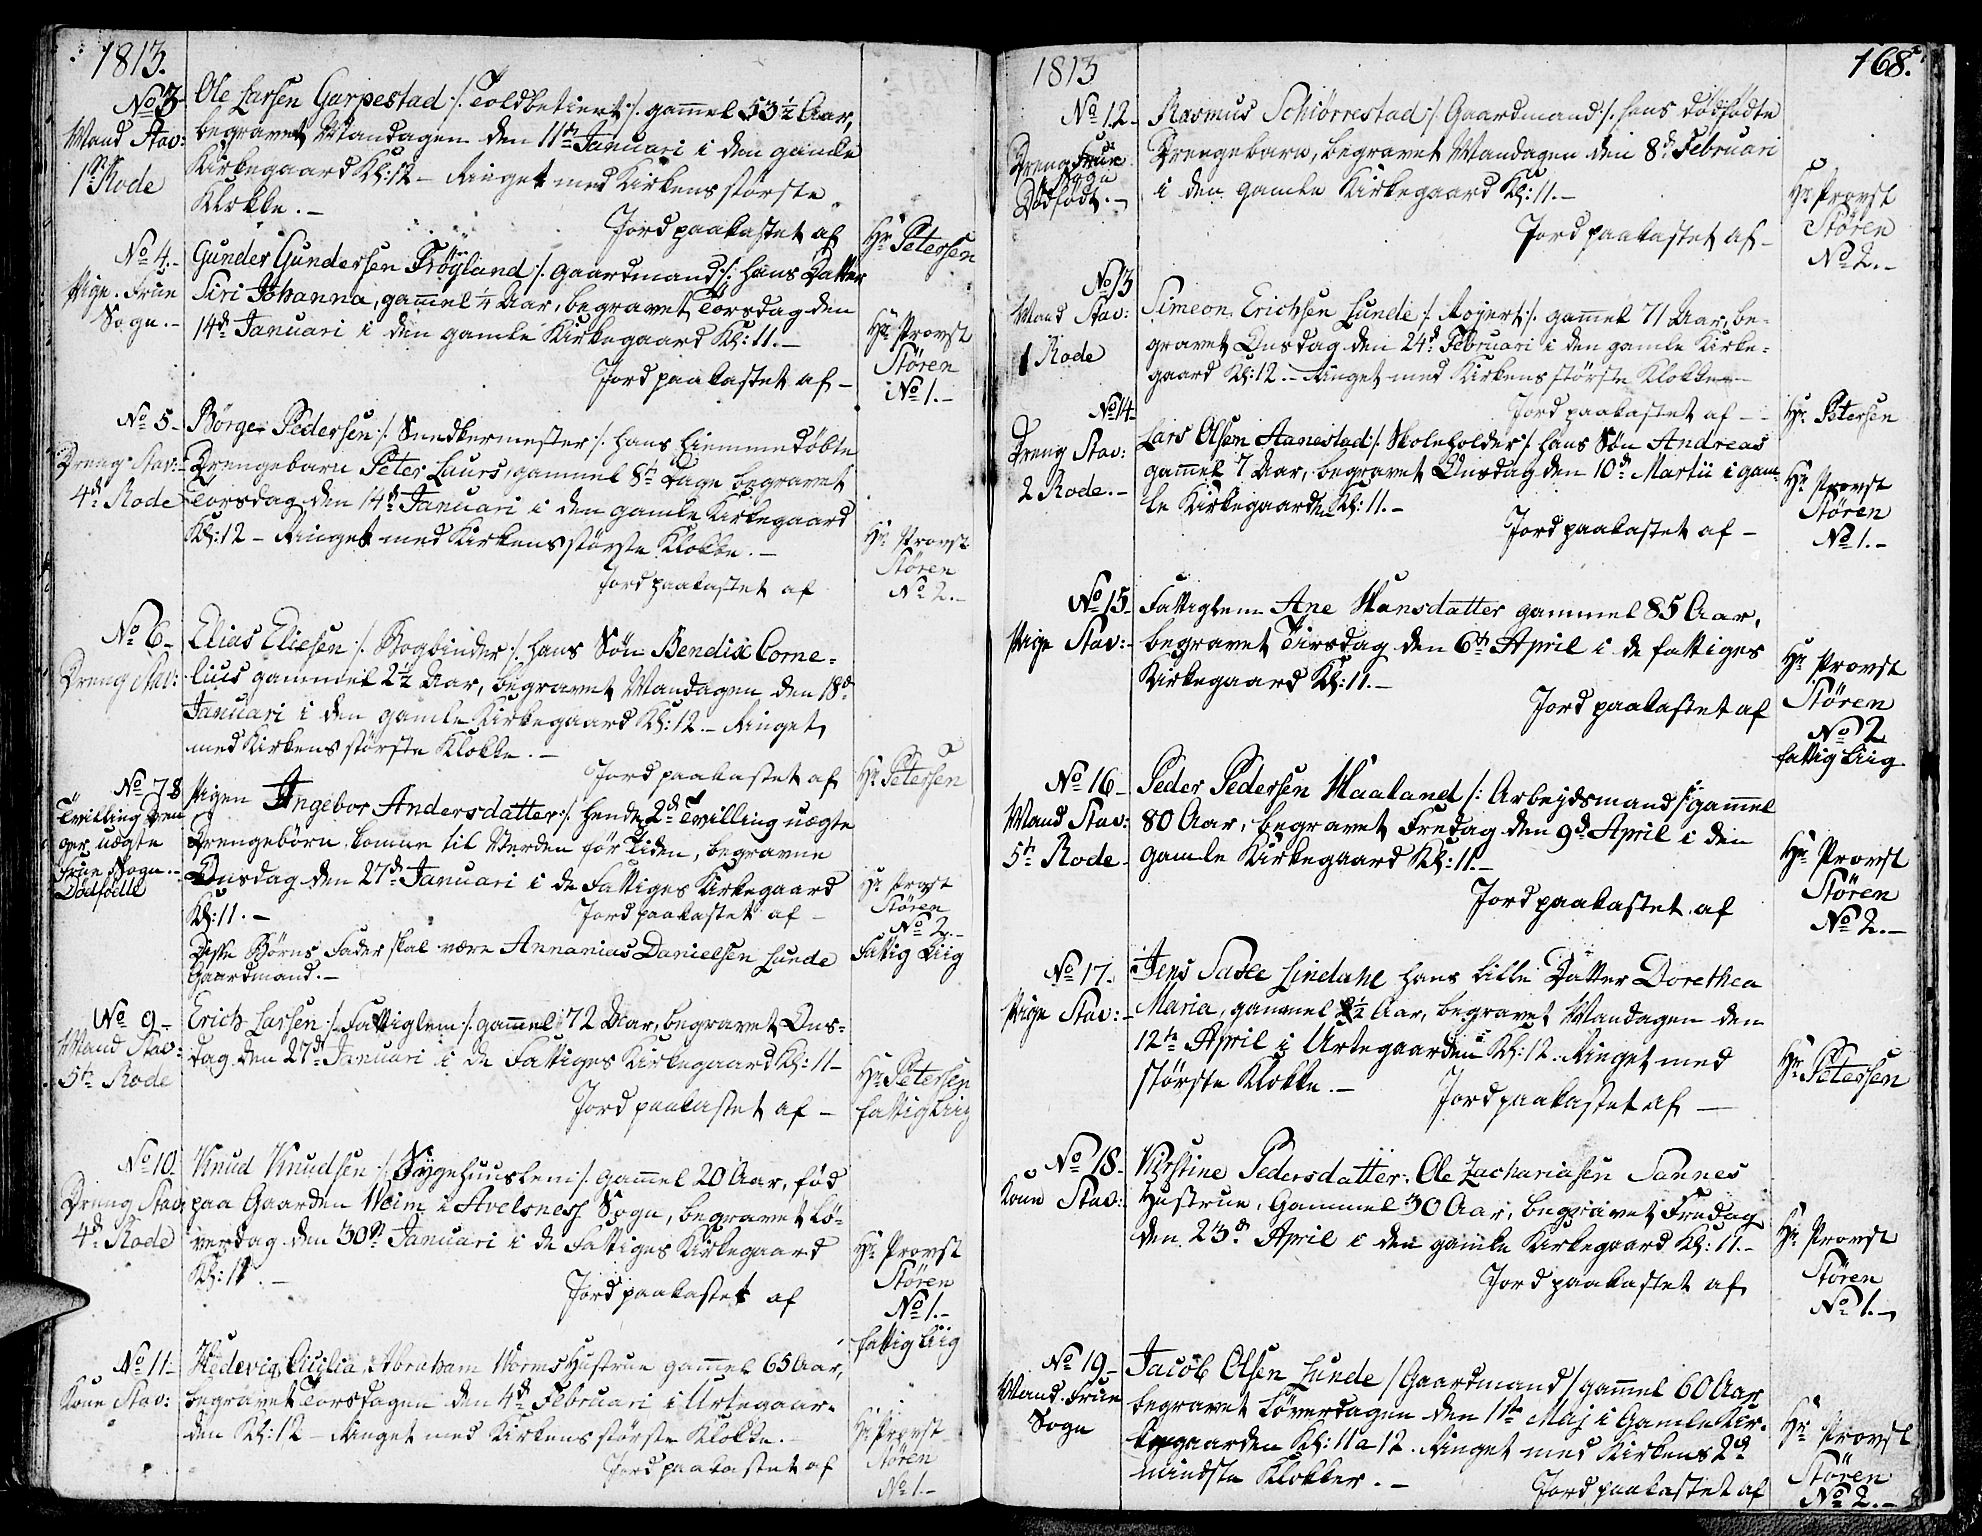 1813.
No 3
Mand Stav:
1st Rode
Ole Larsen Garpestad /: Toldbetient :/ gamel 53½ Aar,
begravet Mandagen den 11te Januari i den gamle
Kirkegaard Kl: 12 – Ringet med Kirkens største
Klokke. –
Jord paakastet af
Hr Petersen
No 4. –
Pige. Frue
Sogn. –
Gunder Gundersen Frøyland /: gaardmand :/ hans Datter
Siri Johanna, gamel ¼ Aar, begravet Torsdag den
14de Januari i den gamle Kirkegaard Kl: 11. –
Jord paakastet af –
Hr Provst
Støren
No 1. –
No 5 –
Dreng Stav: –
4de Rode
Børge Pedersen /: Snedkermester :/ hans hiemmedøbte
Drengebarn Peter Laurs, gammel 8te Dage begravet
Torsdag den 14de Januari i den gamle Kirkegaard
Kl: 12 – Ringet med Kirkens største Klokke. –
Jord paakastet af
Hr Provst
Støren
No 2. –
No 6 –
Dreng Stav:
Elias Eliesen /: Bogbinder :/ hans Søn Bendix Corne-
lius gammel 2½ Aar, begravet Mandagen den 18de
Januari i den gamle Kirkegaard Kl: 12. – Ringet
med Kirkens største Klokke. –
Jord paakastet af
Hr Petersen
No 7 8
Tvilling Dren
ger uægte
Frue Sogn. –
Dødfødte
Pigen Ingebor Andersdatter :/ hendes 2de Tvilling uægte
Drengebørn komne til Verden før Tiden, begravne
Onsdag den 27de Januari i de Fattiges Kirkegaard
Kl: 11. –
Jord paakastet af –
Hr Provst
Støren
No 2. –
Fattig Liig
Disse Børns Fader skal være Annanias Danielsen Lunde
Gaardmand. –
No 9 –
Mand Stav:
5te Rode
Erich Larsen /: Fattiglem :/ gamel 72 Aar, begravet Ons-
dag den 27de Januari i de Fattiges Kirkegaard Kl: 11 –
Jord paakastet af –
Hr Petersen
fattig Liig
No 10.
Dreng Stav:
4de Rode
Knud Knudsen /: Sygehuuslem :/ gamel 20 Aar, fød
paa Gaarden Heim i Avelsnes Sogn, begravet Lø-
verdag den 30te Januari i de Fattiges Kirkegaard
Kl: 11. –
Jord paakastet af
Hr Provst
Støren
No 1. –
fattig Liig
No 11 –
Kone Stav:
Hedevig Cicilia Abraham Worms Hustrue gamel 65 Aar,
begravet Torsdagen den 4de Februari i Urtegaar-
den Kl: 12 – Ringet med Kirkens største Klokke. –
Jord paakastet af
Hr Provst
Støren
No 1. –
1813
168.
No 12 –
Dreng Frue
Sogn
Dødfødt. –
Rasmus Schiørrestad /: Gaardmand :/ hans dødfødte
Drengebarn, begravet Mandagen den 8de Februari
i den gamle Kirkegaard Kl: 11. –
Jord paakastet af –
Hr Provst
Støren
No 2. –
No 13
Mand Stav:
1 Rode
Simeon Erichsen Lunde /: Rojert :/ gamel 71 Aar, be-
gravet Onsdag den 24de Februari i den gamle Kirke-
gaard Kl: 12. – Ringet med Kirkens største Klokke –
Jord paakastet af – –
Hr Petersen
No 14
Dreng Stav:
2 Rode. –
Lars Olsen Aanestad /: Skoleholder :/ hans Søn Andreas
gamel 7 Aar, begravet Onsdag den 10de Martii i gam-
le Kirkegaarden Kl: 11. –
Jord paakastet af –
Hr Provst
Støren
No 1. –
No 15 –
Pige Stav: –
Fattiglem Ane Hansdatter gammel 85 Aar,
begravet Tirsdag den 6te April i de fattiges
Kirkegaard Kl: 11. –
Jord paakastet af
Hr Provst
Støren
No 2
fattig Liig.
No 16 –
Mand Stav:
5te Rode –
Peder Pedersen Haaland /: Arbejdsmand :/ gamel
80 Aar, begravet Fredag den 9de April i den
gamle Kirkegaard Kl: 11. –
Jord paakastet af
Hr Provst
Støren
No 2. –
No 17.
Pige Stav: –
Jens Saxe Lindahl hans lille Datter Dorethea
Maria, gammel ½ Aar, begravet Mandagen den
12te April i Urtegaarden Kl: 12. Ringet med
største Klokke. –
Jord paakastet af –
Hr Petersen
No 18 –
Kone Stav:
Kirstine Pedersdatter. Ole Zachariasen Sannes
Hustrue, Gammel 30 Aar, begravet Fredag
den 23de April i den gamle Kirkegaard Kl: 11. –
Jord paakastet af
Hr Provst
Støren
No 1. –
No 19 –
Mand. Frue
Sogn
Jacob Olsen Lunde / Gaardmand / gamel 60 Aar
begravet Løverdagen den 1ste Maj i Gamle Kir-
kegaarden Kl: 11 a 12. Ringet med Kirkens 2de
mindste Klokker. –
Jord paakastet af
Hr Provst
Støren
No 2. –